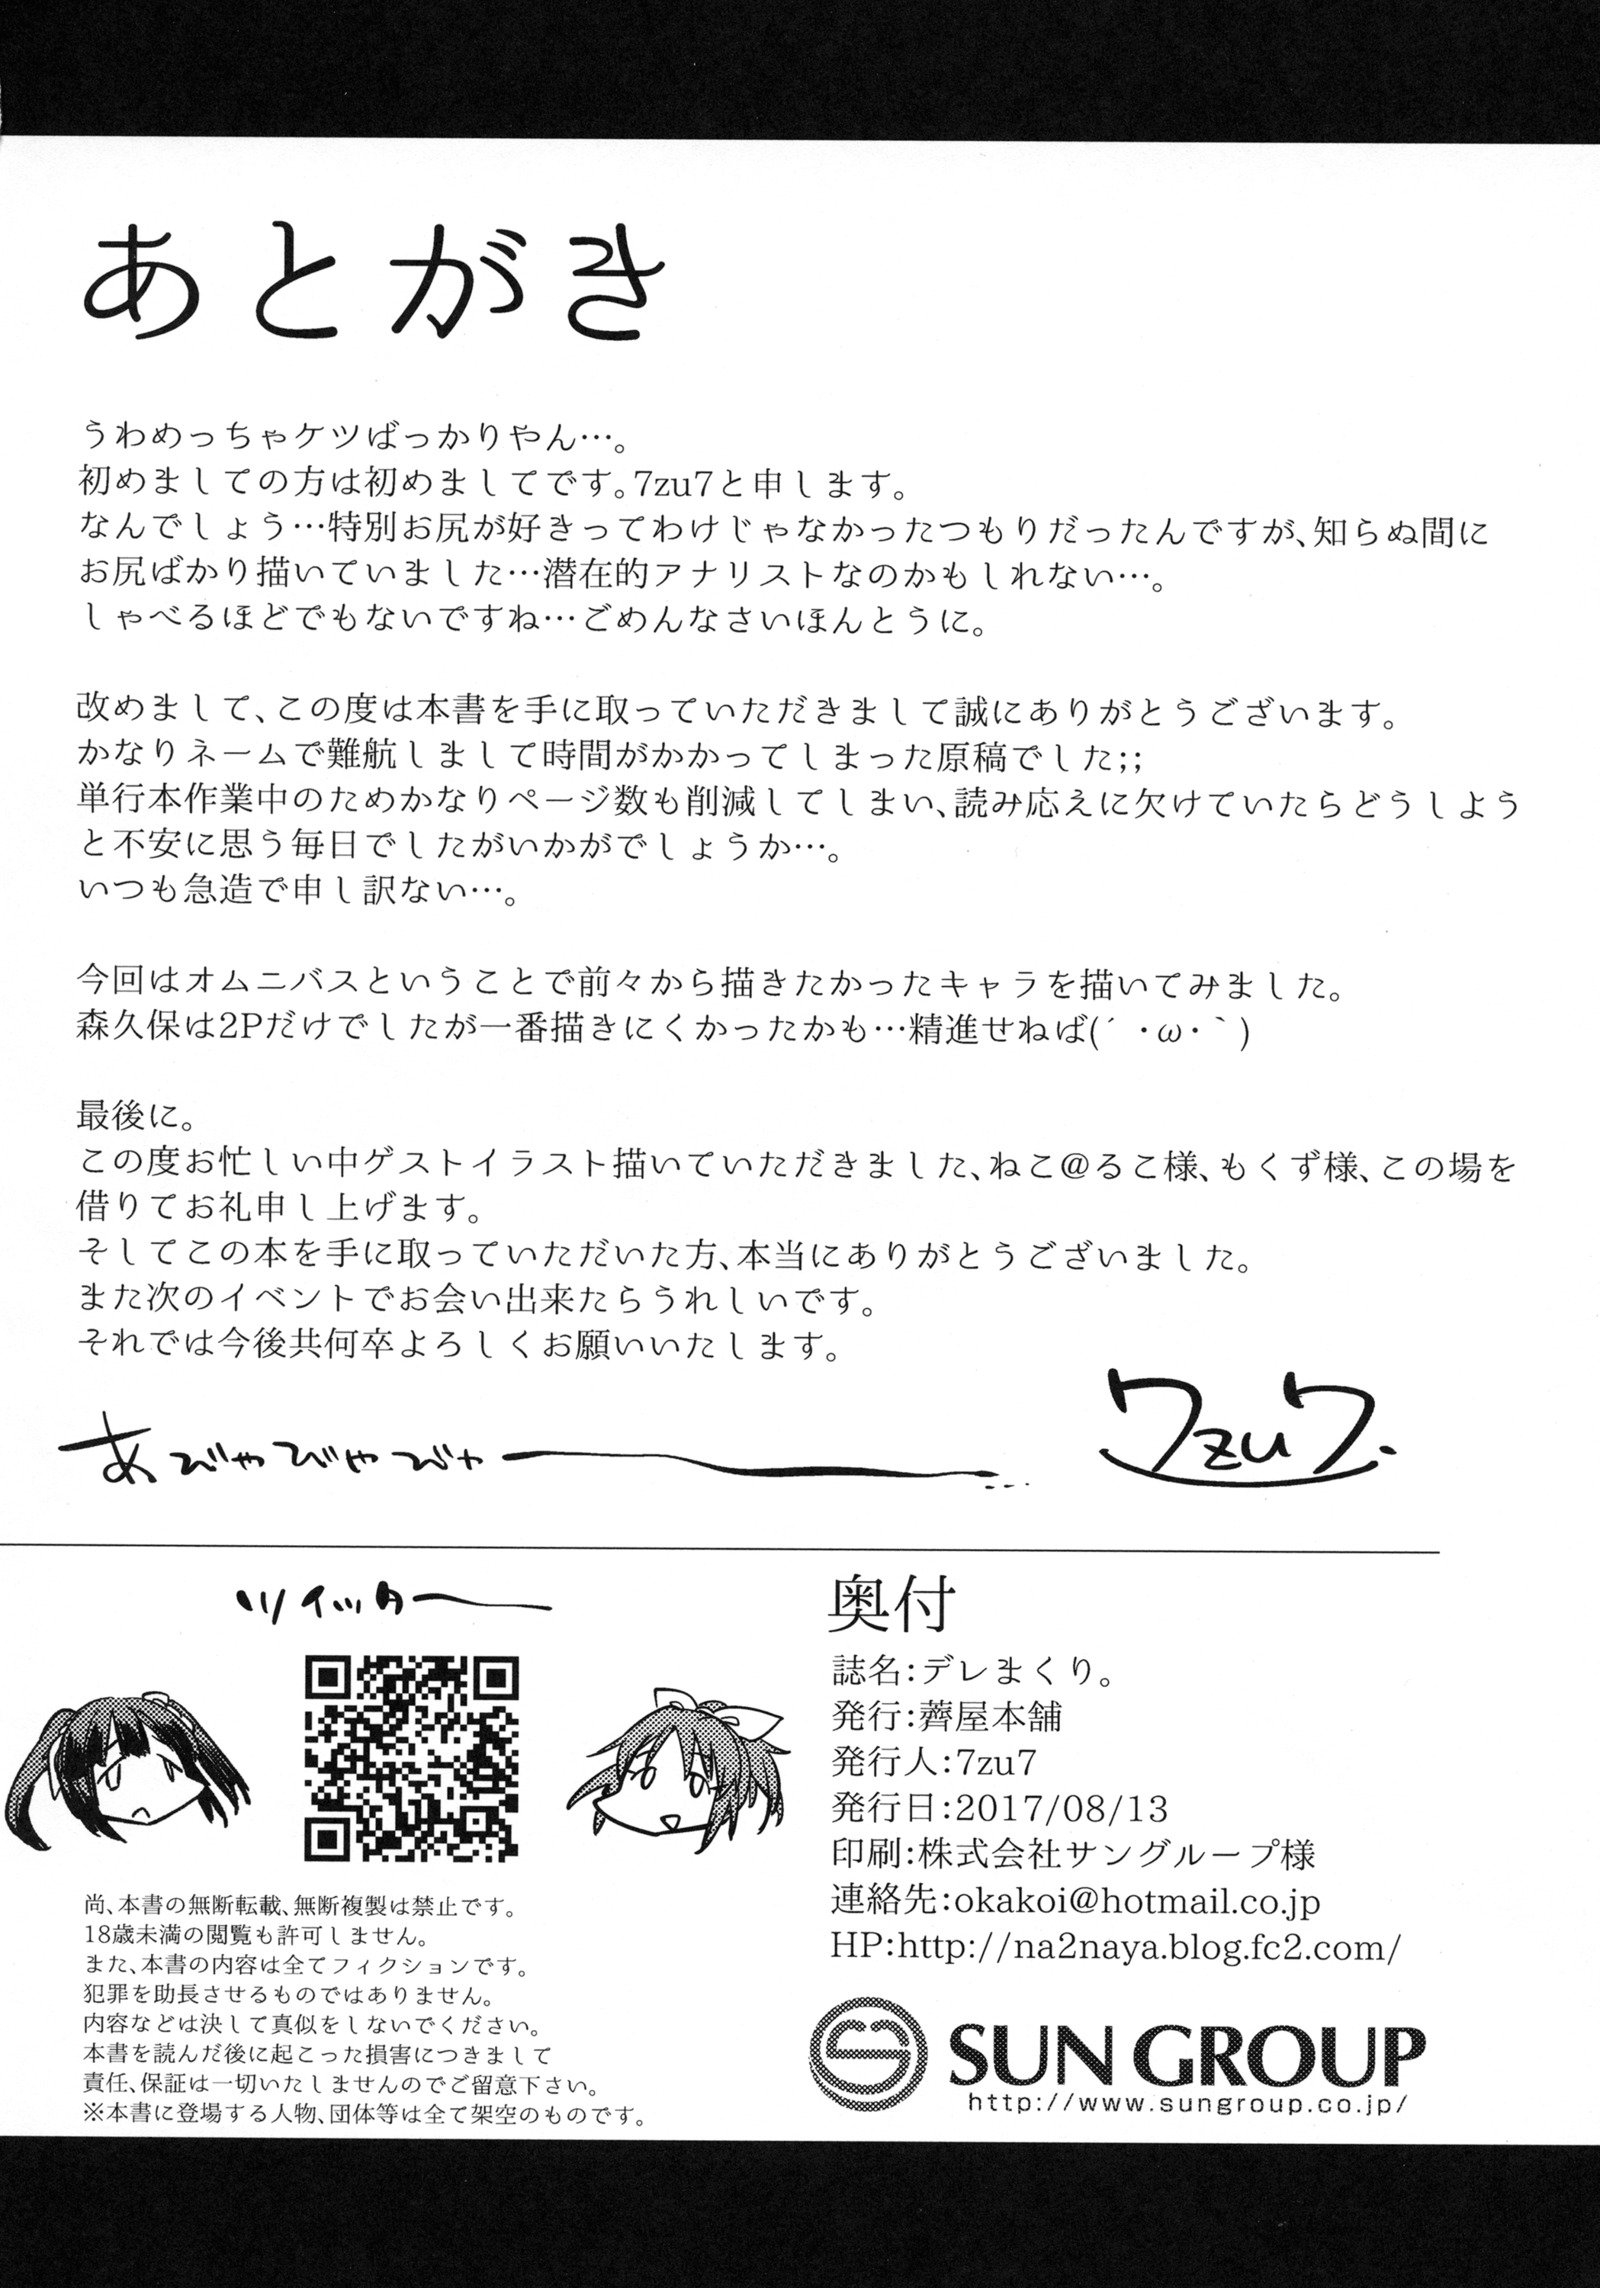 あとがき
うわめっちゃケツばっかりやん…。
初めましての方は初めましてです。7zu7と申します。
なんでしょう…特別お尻が好きってわけじゃなかったつもりだったんですが、知らぬ間に
お尻ばかり描いていました…潜在的アナリストなのかもしれない…。
しゃべるほどでもないですね…ごめんなさいほんとうに。
改めまして、この度は本書を手に取っていただきまして誠にありがとうございます。
かなりネームで難航しまして時間がかかってしまった原稿でした;;
単行本作業中のためかなりページ数も削減してしまい、読み応えに欠けていたらどうしよう
と不安に思う毎日でしたがいかがでしょうか…。
いつも急造で申し訳ない…。
今回はオムニバスということで前々から描きたかったキャラを描いてみました。
森久保は2Pだけでしたが一番描きにくかったかも…精進せねば(´・ω・｀)
最後に。
この度お忙しい中ゲストイラスト描いていただきました、ねこ@るこ様、もくず様、この場を
借りてお礼申し上げます。
そしてこの本を手に取っていただいた方、本当にありがとうございました。
また次のイベントでお会い出来たらうれしいです。
それでは今後共何卒よろしくお願いいたします。
あびゃびゃびゃー…
7zu7.
ツイッター
尚、本書の無断転載、無断複製は禁止です。
18歳未満の閲覧も許可しません。
また、本書の内容は全てフィクションです。
犯罪を助長させるものではありません。
内容などは決して真似をしないでください。
本書を読んだ後に起こった損害につきまして
責任、保証は一切いたしませんのでご留意下さい。
※本書に登場する人物、団体等は全て架空のものです。
奥付
誌名:デレまくり。
発行:薺屋本舗
発行人:7zu7
発行日:2017/08/13
印刷:株式会社サングループ様
連絡先:okakoi@hotmail.co.jp
HP:http://na2naya.blog.fc2.com/
SUN GROUP
http://www.sungroup.co.jp/